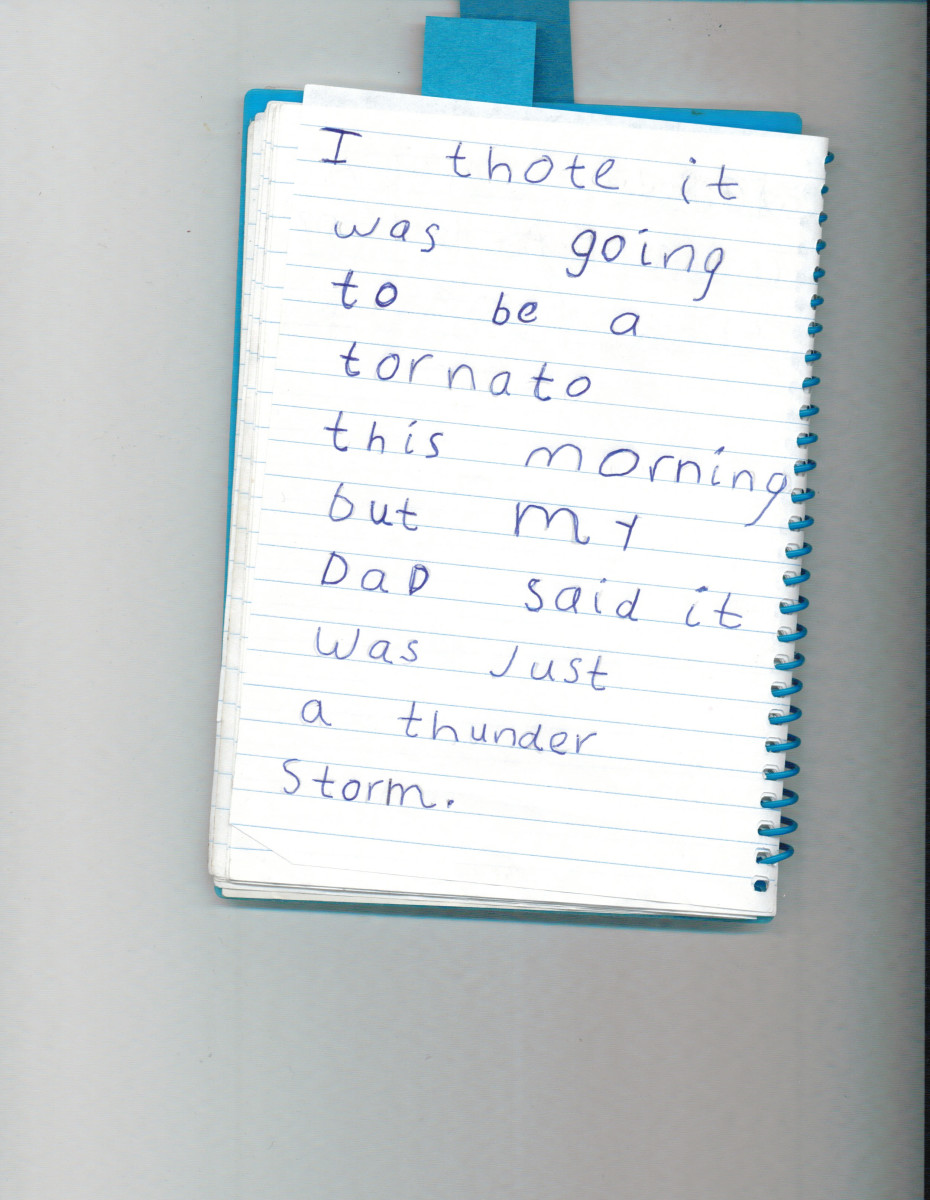 I thote it
was going
to be a
tornato
this morning
but my
DaD said it
was Just
a thunder
Storm.